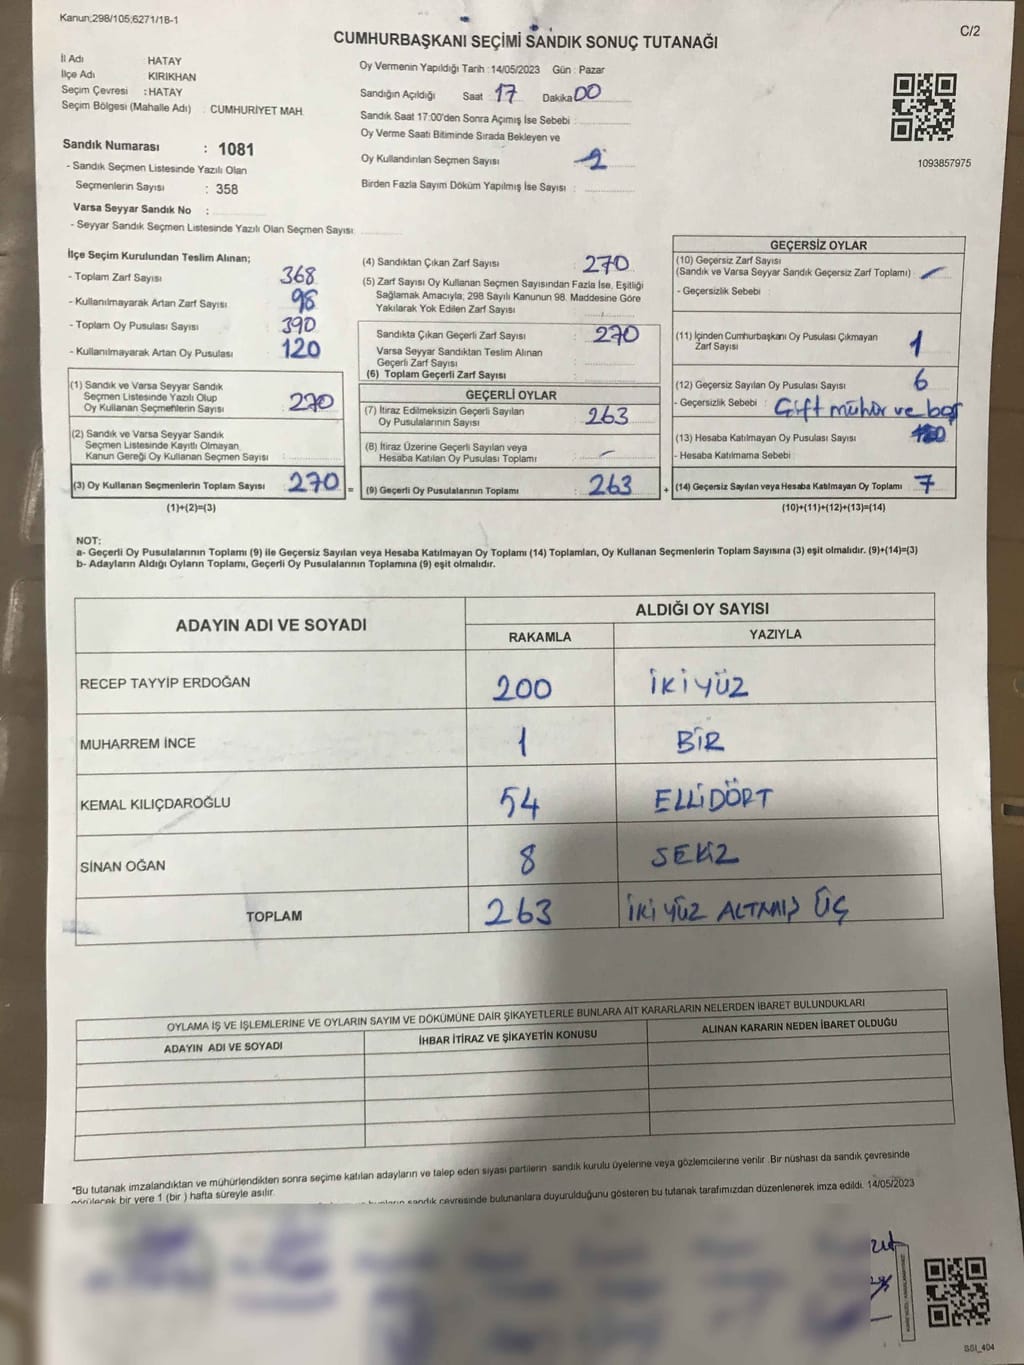 Kanun;298/105;6271/1B-1
C/2
CUMHURBAŞKANI SEÇİMİ SANDIK SONUÇ TUTANAĞI
İl Adı HATAY
İlçe Adı KIRIKHAN
Seçim Çevresi : HATAY
Seçim Bölgesi (Mahalle Adı) : CUMHURİYET MAH.
Sandık Numarası : 1081
- Sandık Seçmen Listesinde Yazılı Olan
Seçmenlerin Sayısı : 358
Varsa Seyyar Sandık No :
- Seyyar Sandık Seçmen Listesinde Yazılı Olan Seçmen Sayısı
Oy Vermenin Yapıldığı Tarih : 14/05/2023 Gün : Pazar
Sandığın Açıldığı Saat 17 Dakika 00
Sandık Saat 17:00'den Sonra Açımış İse Sebebi :
Oy Verme Saati Bitiminde Sırada Bekleyen ve
Oy Kullandırılan Seçmen Sayısı
Birden Fazla Sayım Döküm Yapılmış İse Sayısı :
1093857975
İlçe Seçim Kurulundan Teslim Alınan;
- Toplam Zarf Sayısı 368
- Kullanılmayarak Artan Zarf Sayısı 98
- Toplam Oy Pusulası Sayısı 390
- Kullanılmayarak Artan Oy Pusulası 120
(1) Sandık ve Varsa Seyyar Sandık
Seçmen Listesinde Yazılı Olup
Oy Kullanan Seçmenlerin Sayısı 270
(2) Sandık ve Varsa Seyyar Sandık
Seçmen Listesinde Kayıtlı Olmayan,
Kanun Gereği Oy Kullanan Seçmen Sayısı
(3) Oy Kullanan Seçmenlerin Toplam Sayısı 270 =
(1)+(2)=(3)
(4) Sandıktan Çıkan Zarf Sayısı : 270
(5) Zarf Sayısı Oy Kullanan Seçmen Sayısından Fazla İse, Eşitliği
Sağlamak Amacıyla; 298 Sayılı Kanunun 98. Maddesine Göre
Yakılarak Yok Edilen Zarf Sayısı
Sandıkta Çıkan Geçerli Zarf Sayısı : 270
Varsa Seyyar Sandıktan Teslim Alınan
Geçerli Zarf Sayısı
(6) Toplam Geçerli Zarf Sayısı
GEÇERLİ OYLAR
(7) İtiraz Edilmeksizin Geçerli Sayılan
Oy Pusulalarının Sayısı : 263
(8) İtiraz Üzerine Geçerli Sayılan veya
Hesaba Katılan Oy Pusulası Toplamı : -
(9) Geçerli Oy Pusulalarının Toplamı : 263 +
GEÇERSİZ OYLAR
(10) Geçersiz Zarf Sayısı
(Sandık ve Varsa Seyyar Sandık Geçersiz Zarf Toplamı) : -
- Geçersizlik Sebebi :
(11) İçinden Cumhurbaşkanı Oy Pusulası Çıkmayan
Zarf Sayısı 1
(12) Geçersiz Sayılan Oy Pusulası Sayısı 6
- Geçersizlik Sebebi : Çift mühür ve boş
(13) Hesaba Katılmayan Oy Pusulası Sayısı
- Hesaba Katılmama Sebebi :
(14) Geçersiz Sayılan veya Hesaba Katılmayan Oy Toplamı : 7
(10)+(11)+(12)+(13)=(14)
NOT:
a- Geçerli Oy Pusulalarının Toplamı (9) ile Geçersiz Sayılan veya Hesaba Katılmayan Oy Toplamı (14) Toplamları, Oy Kullanan Seçmenlerin Toplam Sayısına (3) eşit olmalıdır. (9)+(14)=(3)
b- Adayların Aldığı Oyların Toplamı, Geçerli Oy Pusulalarının Toplamına (9) eşit olmalıdır.
ADAYIN ADI VE SOYADI
ALDIĞI OY SAYISI
RAKAMLA YAZIYLA
RECEP TAYYİP ERDOĞAN 200 İKİYÜZ
MUHARREM İNCE 1 BİR
KEMAL KILIÇDAROĞLU 54 ELLİDÖRT
SİNAN OĞAN 8 SEKİZ
TOPLAM 263 İKİ YÜZ ALTMIŞ ÜÇ
OYLAMA İŞ VE İŞLEMLERİNE VE OYLARIN SAYIM VE DÖKÜMÜNE DAİR ŞİKAYETLERLE BUNLARA AİT KARARLARIN NELERDEN İBARET BULUNDUKLARI
ADAYIN ADI VE SOYADI İHBAR İTİRAZ VE ŞİKAYETİN KONUSU ALINAN KARARIN NEDEN İBARET OLDUĞU
*Bu tutanak imzalandıktan ve mühürlendikten sonra seçime katılan adayların ve talep eden siyasi partilerin sandık kurulu üyelerine veya gözlemcilerine verilir .Bir nüshası da sandık çevresinde
görülecek bir yere 1 (bir ) hafta süreyle asılır.
sandık çevresinde bulunanlara duyurulduğunu gösteren bu tutanak tarafımızdan düzenlenerek imza edildi. 14/05/2023
SSI_404